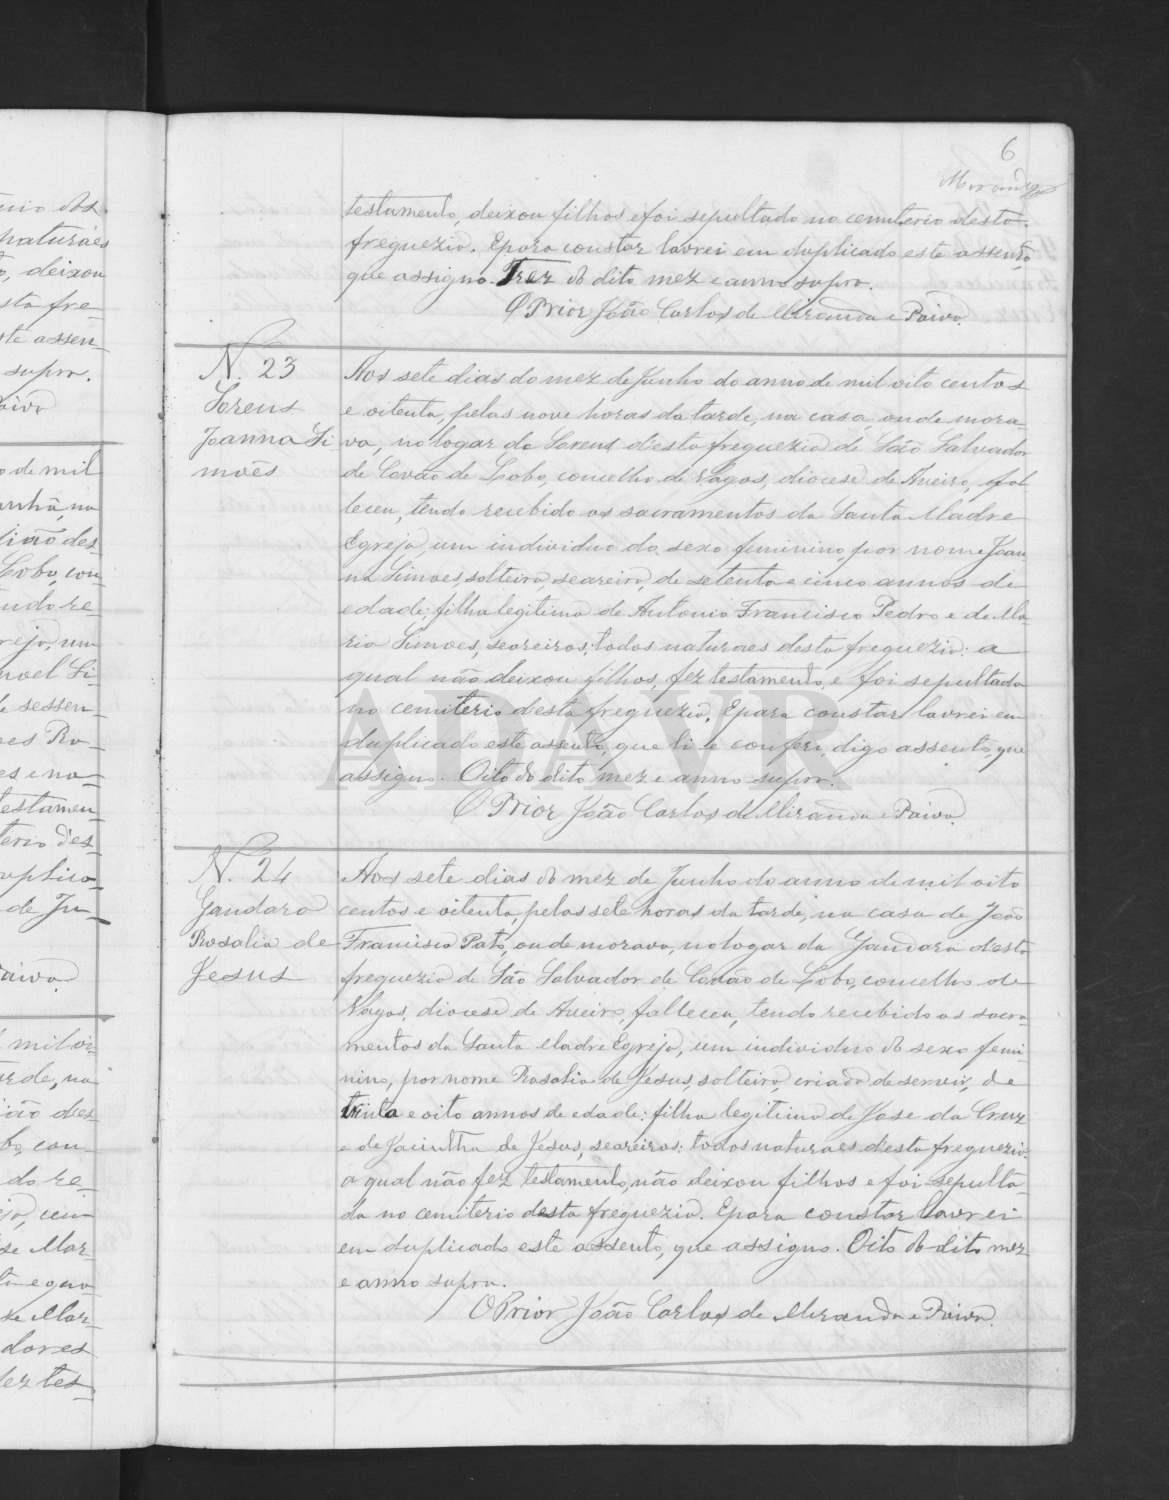 ADAVR
6
Miranda
testamento, deixou filhos e foi sepultado no cemiterio desta
freguezia. E para constar lavrei em duplicado este assento,
que assigno. Trez do dito mez e anno supra.
O Prior João Carlos de Miranda e Paiva.
N. 23
Sorens
Joanna Si-
mões
Aos sete dias do mez de Junho do anno de mil oito centos
e oitenta, pelas nove horas da tarde, na casa onde mora-
va, no logar de Sorens d'esta freguezia de São Salvador
de Covão de Lobo, concelho de Vagos, diocese de Aveiro, fal
leceu, tendo recebido os sacramentos da Santa Madre
Egreja, um individuo do sexo feminino, por nome Joan-
na Simoes, solteira, seareira, de setenta e cinco annos de
edade; filha legitima de Antonio Francisco Pedro e de Ma-
ria Simoes, seareiros; todos naturaes desta freguezia: a
qual não deixou filhos, fez testamento, e foi sepultada
no cemiterio d'esta freguezia. E para constar lavrei em
duplicado este assento, que li e conferi, digo assento, que
assigno. Oito do dito mez e anno supra.
O Prior João Carlos de Miranda e Paiva.
N. 24
Gandara
Rosalia de
Jesus
Aos sete dias do mez de Junho do anno de mil oito
centos e oitenta, pelas sete horas da tarde, na casa de João
Francisco Pato, onde morava, no logar da Gandara d'esta
freguezia de São Salvador de Covão de Lobo, concelho de
Vagos, diocese de Aveiro, falleceu, tendo recebido os sacra-
mentos da Santa Madre Egreja, um individuo do sexo femi-
nino, por nome Rosalia de Jesus, solteira, criada de servir, de
trinta e oito annos de edade: filha legitima de Jose da Cruz
e de Jacintha de Jesus, seareiros: todos naturaes d'esta freguezia:
a qual não fez testamento, não deixou filhos e foi sepulta-
da no cemiterio desta freguezia. E para constar lavrei
em duplicado este assento, que assigno. Oito do dito mez
e anno supra.
O Prior João Carlos de Miranda e Paiva.